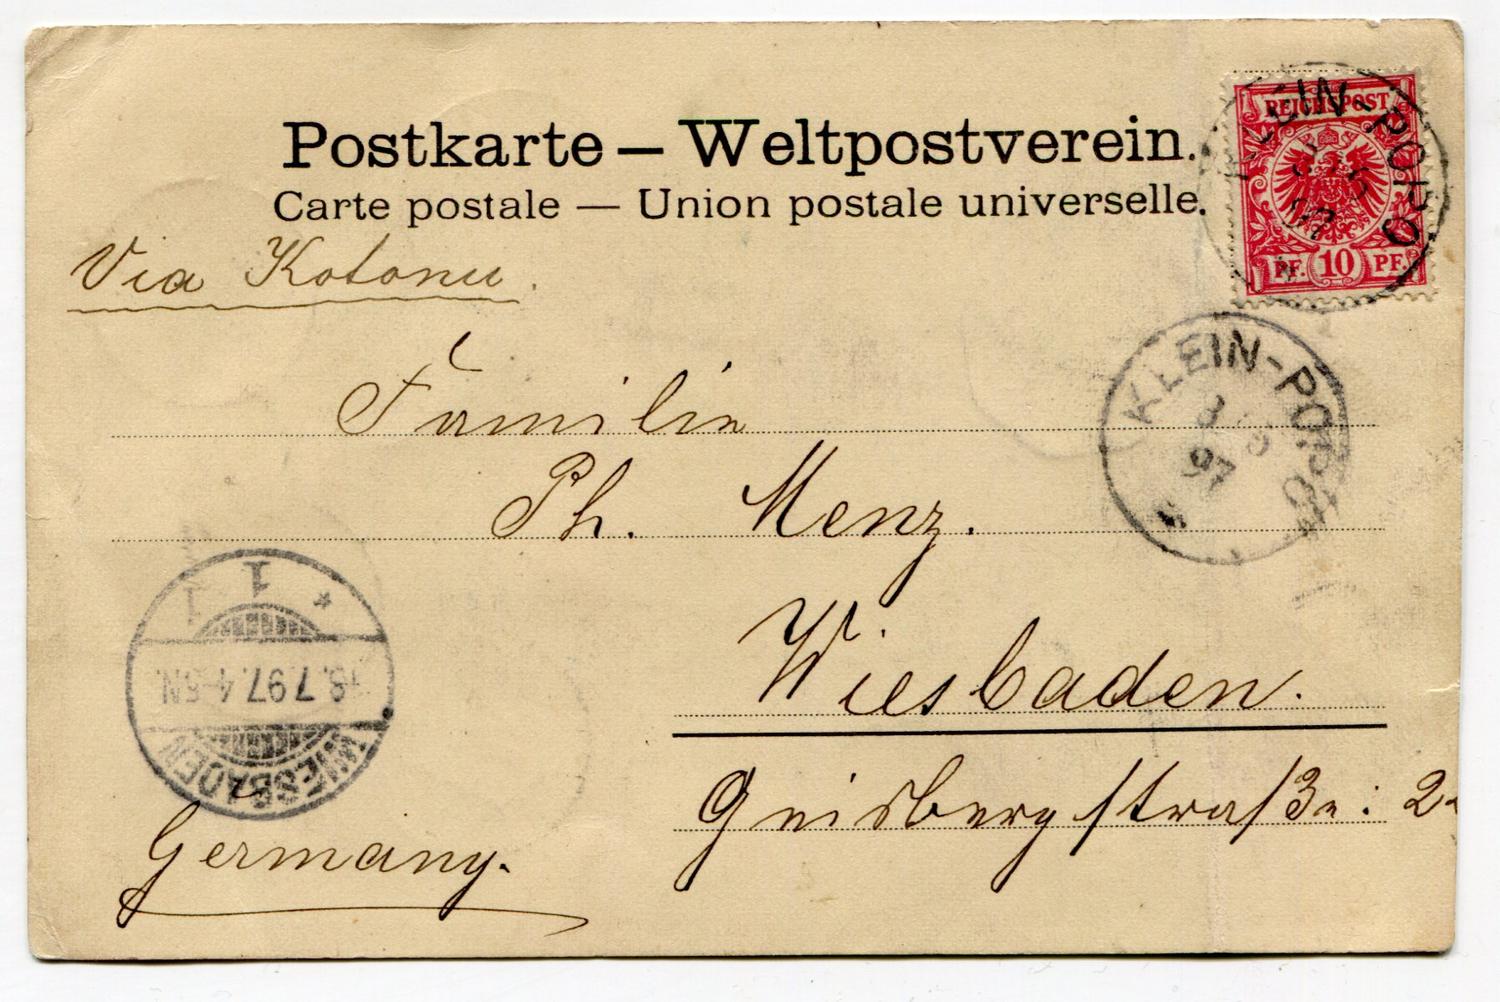 Postkarte — Weltpostverein.
Carte postale — Union postale universelle.
REICHSPOST
PF. 10 PF.
KLEIN-POPO
97
Via Kotonu.
Familie
Ph. Menz.
KLEIN-POPO
97
Wiesbaden.
Geisbergstraße: 2
1 *
8.7.97.4-5N.
WIESBADEN
Germany.